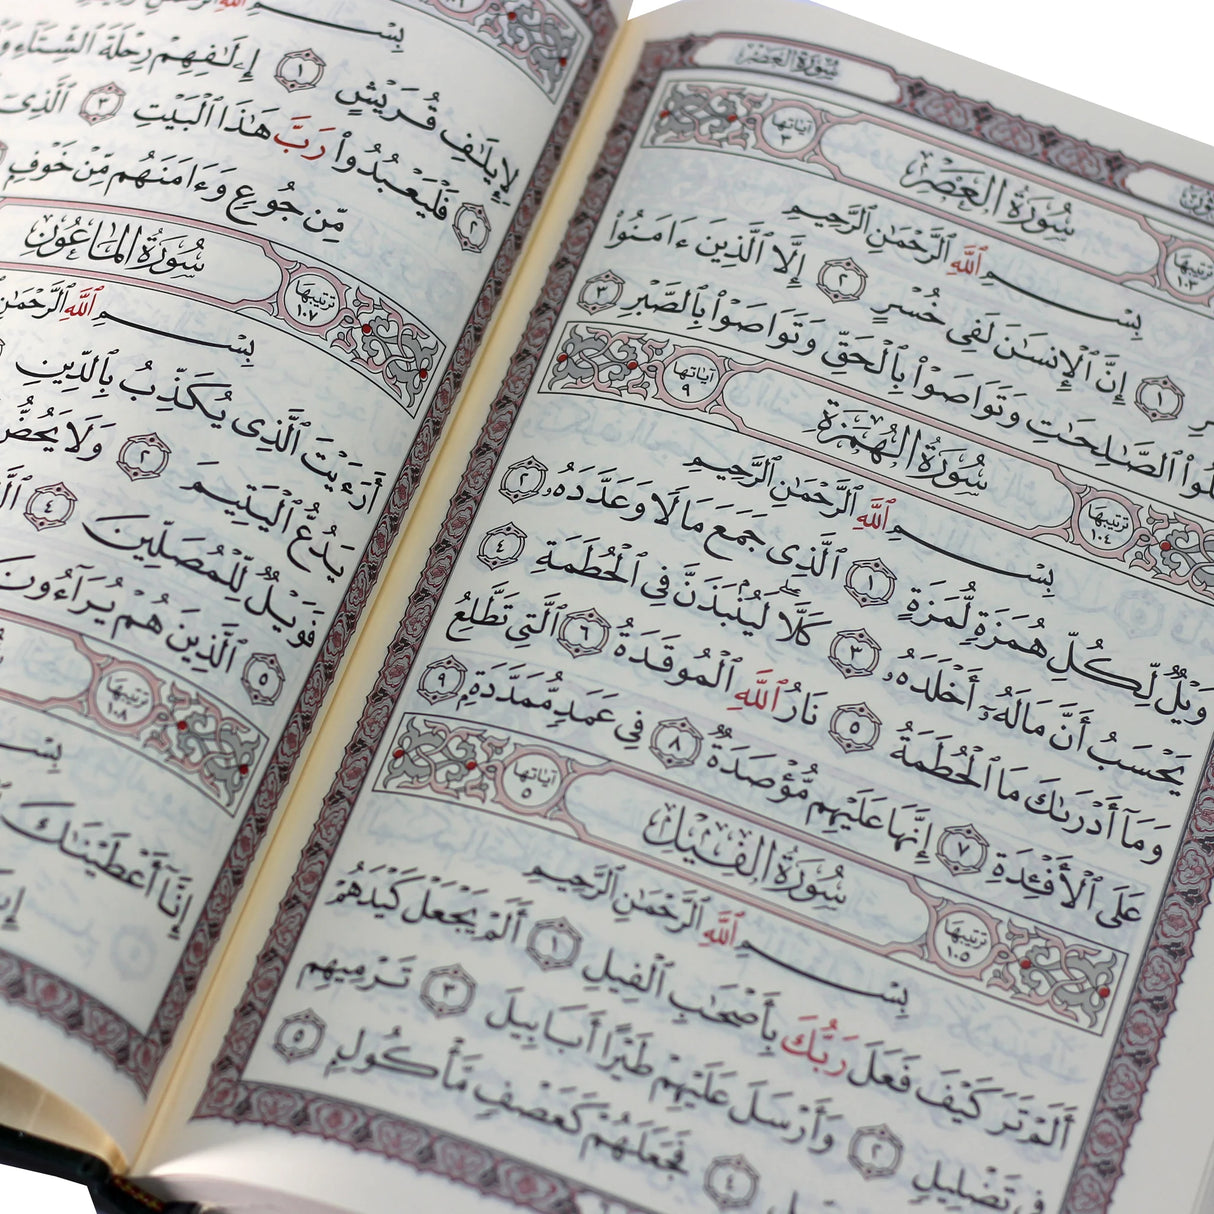 سُورَةُ العَصْرِ
آيَاتُهَا ٣ سُورَةُ العَصْرِ تَرْتِيبُهَا ١٠٣
بِسْمِ ٱللَّهِ ٱلرَّحْمَٰنِ ٱلرَّحِيمِ
١ إِنَّ ٱلْإِنسَٰنَ لَفِى خُسْرٍ ٢ إِلَّا ٱلَّذِينَ ءَامَنُوا۟
ٱلصَّٰلِحَٰتِ وَتَوَاصَوْا۟ بِٱلْحَقِّ وَتَوَاصَوْا۟ بِٱلصَّبْرِ ٣
آيَاتُهَا ٩ سُورَةُ الهُمَزَةِ تَرْتِيبُهَا ١٠٤
بِسْمِ ٱللَّهِ ٱلرَّحْمَٰنِ ٱلرَّحِيمِ
وَيْلٌ لِّكُلِّ هُمَزَةٍ لُّمَزَةٍ ١ ٱلَّذِى جَمَعَ مَالًا وَعَدَّدَهُۥ ٢
يَحْسَبُ أَنَّ مَالَهُۥٓ أَخْلَدَهُۥ ٣ كَلَّا ۖ لَيُنۢبَذَنَّ فِى ٱلْحُطَمَةِ ٤
وَمَآ أَدْرَىٰكَ مَا ٱلْحُطَمَةُ ٥ نَارُ ٱللَّهِ ٱلْمُوقَدَةُ ٦ ٱلَّتِى تَطَّلِعُ
عَلَى ٱلْأَفْـِٔدَةِ ٧ إِنَّهَا عَلَيْهِم مُّؤْصَدَةٌ ٨ فِى عَمَدٍ مُّمَدَّدَةٍۭ ٩
آيَاتُهَا ٥ سُورَةُ الفِيلِ تَرْتِيبُهَا ١٠٥
بِسْمِ ٱللَّهِ ٱلرَّحْمَٰنِ ٱلرَّحِيمِ
أَلَمْ تَرَ كَيْفَ فَعَلَ رَبُّكَ بِأَصْحَٰبِ ٱلْفِيلِ ١ أَلَمْ يَجْعَلْ كَيْدَهُمْ
فِى تَضْلِيلٍ ٢ وَأَرْسَلَ عَلَيْهِمْ طَيْرًا أَبَابِيلَ ٣ تَرْمِيهِم
٤ فَجَعَلَهُمْ كَعَصْفٍ مَّأْكُولٍۭ ٥
بِسْمِ ٱللَّهِ ٱلرَّحْمَٰنِ
لِإِيلَٰفِ قُرَيْشٍ ١ إِۦلَٰفِهِمْ رِحْلَةَ ٱلشِّتَآءِ
٢ فَلْيَعْبُدُوا۟ رَبَّ هَٰذَا ٱلْبَيْتِ ٣ ٱلَّذِىٓ
مِّن جُوعٍ وَءَامَنَهُم مِّنْ خَوْفٍۭ
سُورَةُ المَاعُونِ تَرْتِيبُهَا ١٠٧
بِسْمِ ٱللَّهِ ٱلرَّحْمَٰنِ
أَرَءَيْتَ ٱلَّذِى يُكَذِّبُ بِٱلدِّينِ
يَدُعُّ ٱلْيَتِيمَ ٢ وَلَا يَحُضُّ
فَوَيْلٌ لِّلْمُصَلِّينَ ٤
٥ ٱلَّذِينَ هُمْ يُرَآءُونَ
تَرْتِيبُهَا ١٠٨
بِسْمِ
إِنَّآ أَعْطَيْنَٰكَ